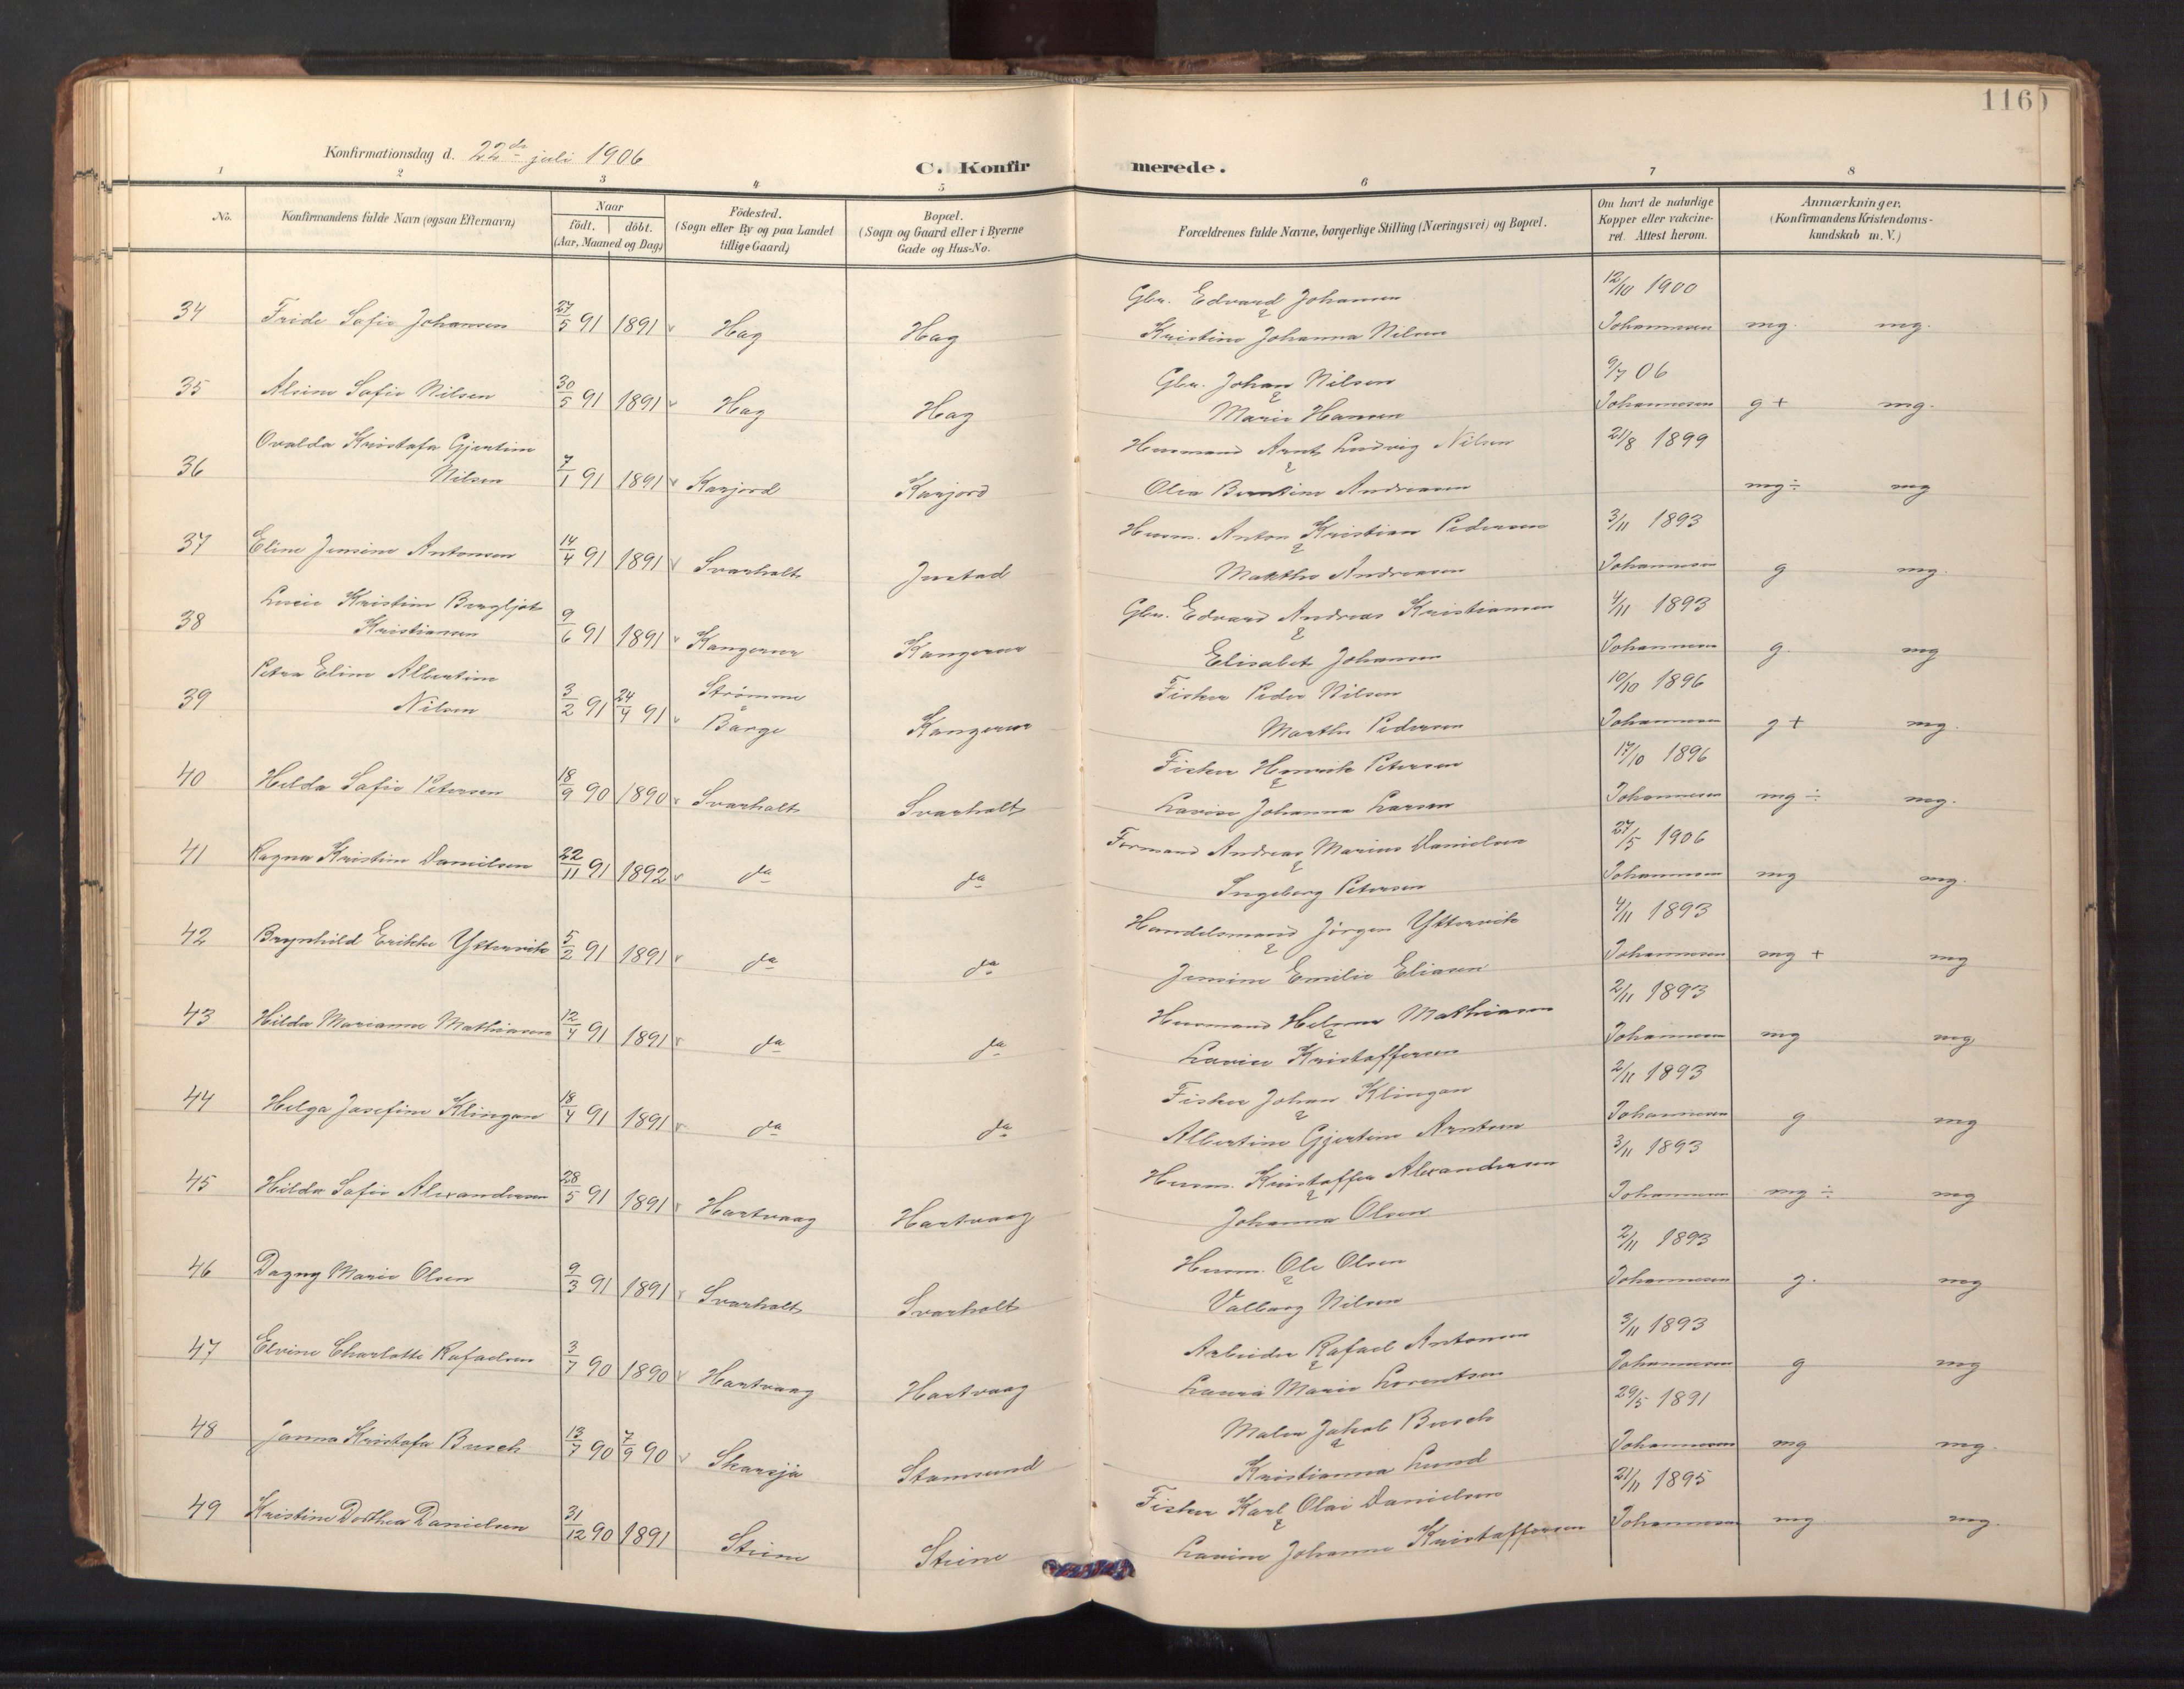 116
Konfirmationsdag d. 22de juli 1906
C. Konfirmerede.
1 2 3 4 5 6 7 8
No. Konfirmandens fulde Navn (ogsaa Efternavn) Naar födt. döbt. (Aar, Maaned og Dag) Födested. (Sogn eller By og paa Landet tillige Gaard) Bopæl. (Sogn og Gaard eller i Byerne Gade og Hus-No. Forældrenes fulde Navne, borgerlige Stilling (Næringsvei) og Bopæl. Om havt de naturlige Kopper eller vakcineret. Attest herom. Anmærkninger. (Konfirmandens Kristendomskundskab m. V.)
Gbr. Edvard Johansen 12/10 1900
34 Fride Sofie Johansen 27/5 91 1891 v Hag Hag & Kristine Johanna Nilsen Johannesen mg. mg.
Gbr. Johan Nilsen 9/7 06
35 Alvine Sofie Nilsen 30/5 91 1891 v Hag Hag & Marie Hansen Johannesen g+ mg.
Ovalda Kristofa Gjertine Husmand Arnt Ludvig Nilsen 21/8 1899
36 Nilsen 7/1 91 1891 v Kanjord Kanjord & Olea Berntine Andreasen mg÷ mg
Husm. Anton Kristian Pedersen 3/11 1893
37 Eline Jensine Antonsen 14/4 91 1891 v Svarholt Justad & Marthe Andreasen Johannesen g mg.
Lucie Kristine Bergljot Gbr. Edvard Andreas Kristiansen 4/11 1893
38 Kristiansen 9/6 91 1891 v Kangerur Kangerur & Elisabet Johansen Johannesen g. mg
Petra Eline Albertine Strømme Fisker Peder Nilsen 10/10 1896
39 Nilsen 3/2 91 24/4 91 v Barge Kangerur Marthe Pedersen Johannesen g+ mg.
Fisker Henrik Petersen 17/10 1896
40 Hilda Sofie Petersen 18/9 90 1890 v Svarholt Svarholt & Lavise Johanna Larsen Johannesen mg÷ mg.
Formand Andreas Marius Danielsen 27/5 1906
41 Ragna Kristine Danielsen 22/11 91 1892 v do do & Ingeborg Petersen Johannesen mg mg.
Handelsmand Jörgen Yttervik 4/11 1893
42 Brynhild Erikke Yttervik 5/2 91 1891 v do do & Jensine Emilie Eliasen Johannesen mg+ mg
Husmand Helmer Mathiasen 2/11 1893
43 Hilda Marianne Mathiasen 12/4 91 1891 v do do & Lavise Kristoffersen Johannesen mg mg
Fisker Johan Klingan 2/11 1893
44 Helga Josefine Klingan 18/4 91 1891 v do do & Albertine Gjertine Arntsen Johannesen g mg
Husm. Kristoffer Alexandersen 3/11 1893
45 Hilda Sofie Alexandersen 28/5 91 1891 v Hartvaag Hartvaag & Johanna Olsen Johannesen mg÷ mg
Husm. Ole Olsen 2/11 1893
46 Dagny Marie Olsen 9/3 91 1891 v Svarholt Svarholt & Valborg Nilsen Johannesen g. mg
Arbeider Rafael Antonsen 3/11 1893
47 Elvine Charlotte Rafaelsen 3/7 90 1890 v Hartvaag Hartvaag & Laura Marie Lorentsen Johannesen g mg
Maler Jakob Busch 29/5 1891
48 Janna Kristofa Busch 13/7 90 7/9 90 v Skarsjø Stamsund & Kristianna Lund Johannesen mg mg.
Fisker Karl Olai Danielsen 21/11 1895
49 Kristine Dorthea Danielsen 31/12 90 1891 Stene Stene & Lavine Johanne Kristoffersen Johannesen mg mg.